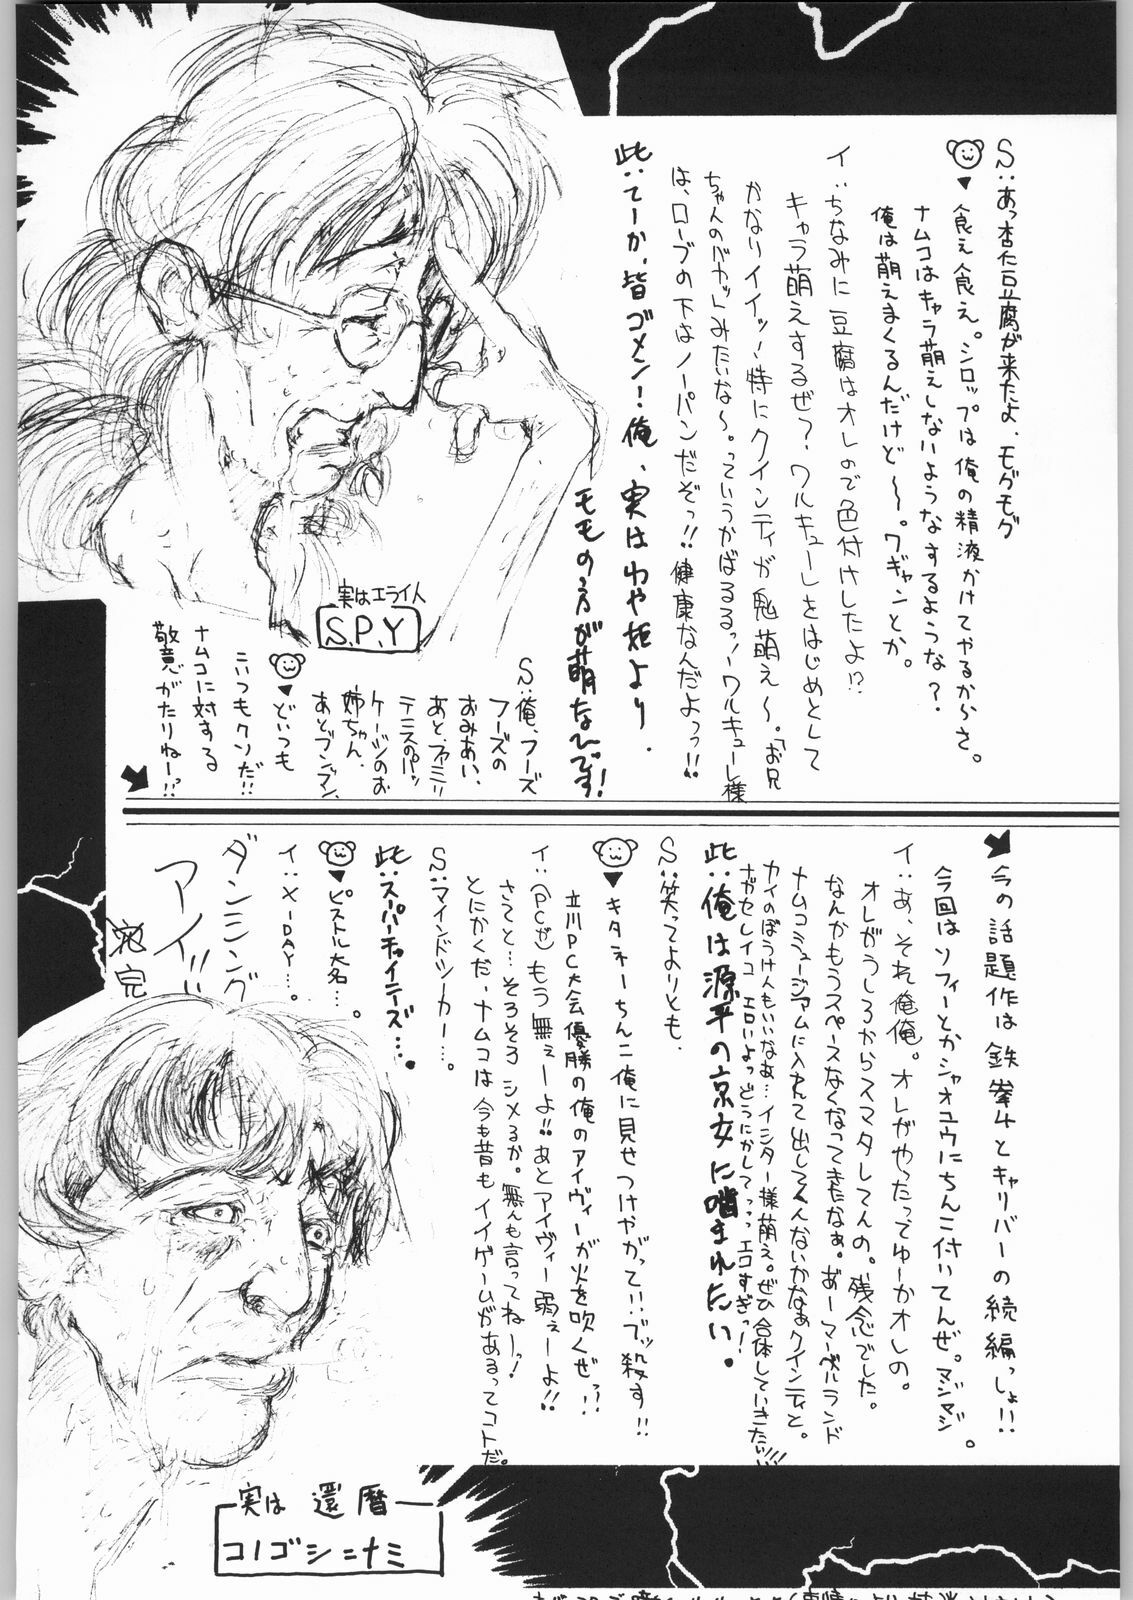 S:あっ杏仁豆腐が来たよ、モグモグ
▼食え食え。シロップは俺の精液かけてやるからさ。
ナムコはキャラ萌えしないようなするような?
俺は萌えまくるんだけど〜。ワギャンとか。
イ:ちなみに豆腐はオレので色付けしたよ!?
キャラ萌えするぜ?ワルキューレとはじめとして
かなりイイッ、特にクインティが鬼萌え〜。「お兄
ちゃんのバカッ」みたいな〜。っていうかばるるっ!ワルキューレ様
は、ローブの下はノーパンだぞっ!!健康なんだよっっ!!
此:てーか、皆ゴメン!俺、実はわや姫より、
モモの方が萌なんです!
実はエライ人
S.P.Y
S:俺、フーズ
フーズの
おみあい、
あと、ファミリ
テニスのパッ
ケージのお
姉ちゃん、
あとブンブン、
▼どいつも
こいつもクソだ!!
ナムコに対する
敬意がたりねーっ!?
今の話題作は鉄拳4とキャリバーの続編っしょ!!
今回はソフィーとかシャオユウにちんこ付いてんぜ。マジマジ。
イ:あ、それ俺俺。オレがやったってゆーかオレの。
オレがうしろからスマタしてんの。残念でした。
なんかもうスペースなくなってきたなぁ。あーマーベルランド
ナムコミュージアムに入れて出してくんないかなぁクインティと。
カイのぼうけんもいいなぁ…イシター様萌え。ぜひ合体していきたい!!!
ガゼセレイユ エロいよっどうにかしてっっっ エロすぎっ!
此:俺は源平の京女に噛まれたい。
S:笑ってよりとも、
▼キタネーちんこ俺に見せつけやがって!!ブッ殺す!!
立川PC大会優勝の俺のアイヴィーが火を吹くぜっ??
イ:(PCが)もう無えーよ!!あとアイヴィー弱えーよ!!
さてと…そろそろシメるか。無んも言ってねーっ!
とにかくだ、ナムコは今も昔もイイゲームがあるってコトだ。
S:マインドシーカー…。
此:スーパーチャイニーズ…。
▼ピストル大名…。
イ:X-DAY…。
ダンシング
アイ!!
完
実は還暦
コノゴシニナミ